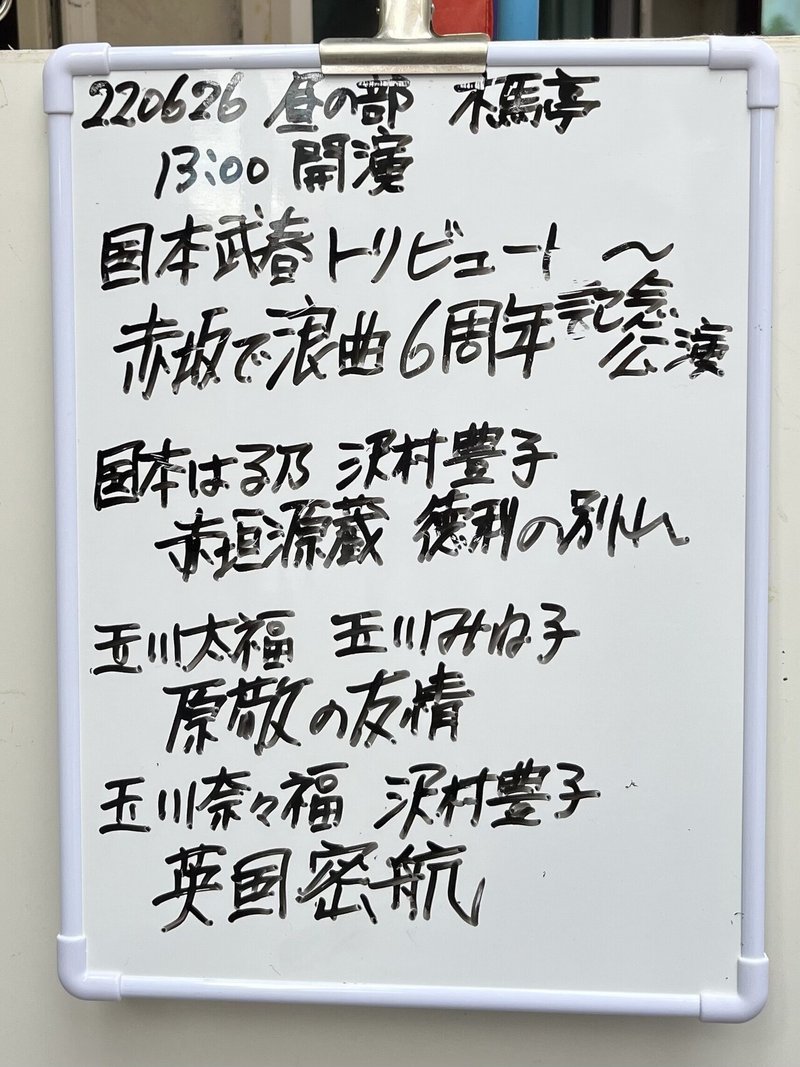 220626 昼の部 木馬亭
13:00 開演
国本武春トリビュート〜
赤坂で浪曲6周年記念公演
国本はる乃 沢村豊子
赤垣源蔵 徳利の別れ
玉川太福 玉川みね子
原敬の友情
玉川奈々福 沢村豊子
英国密航